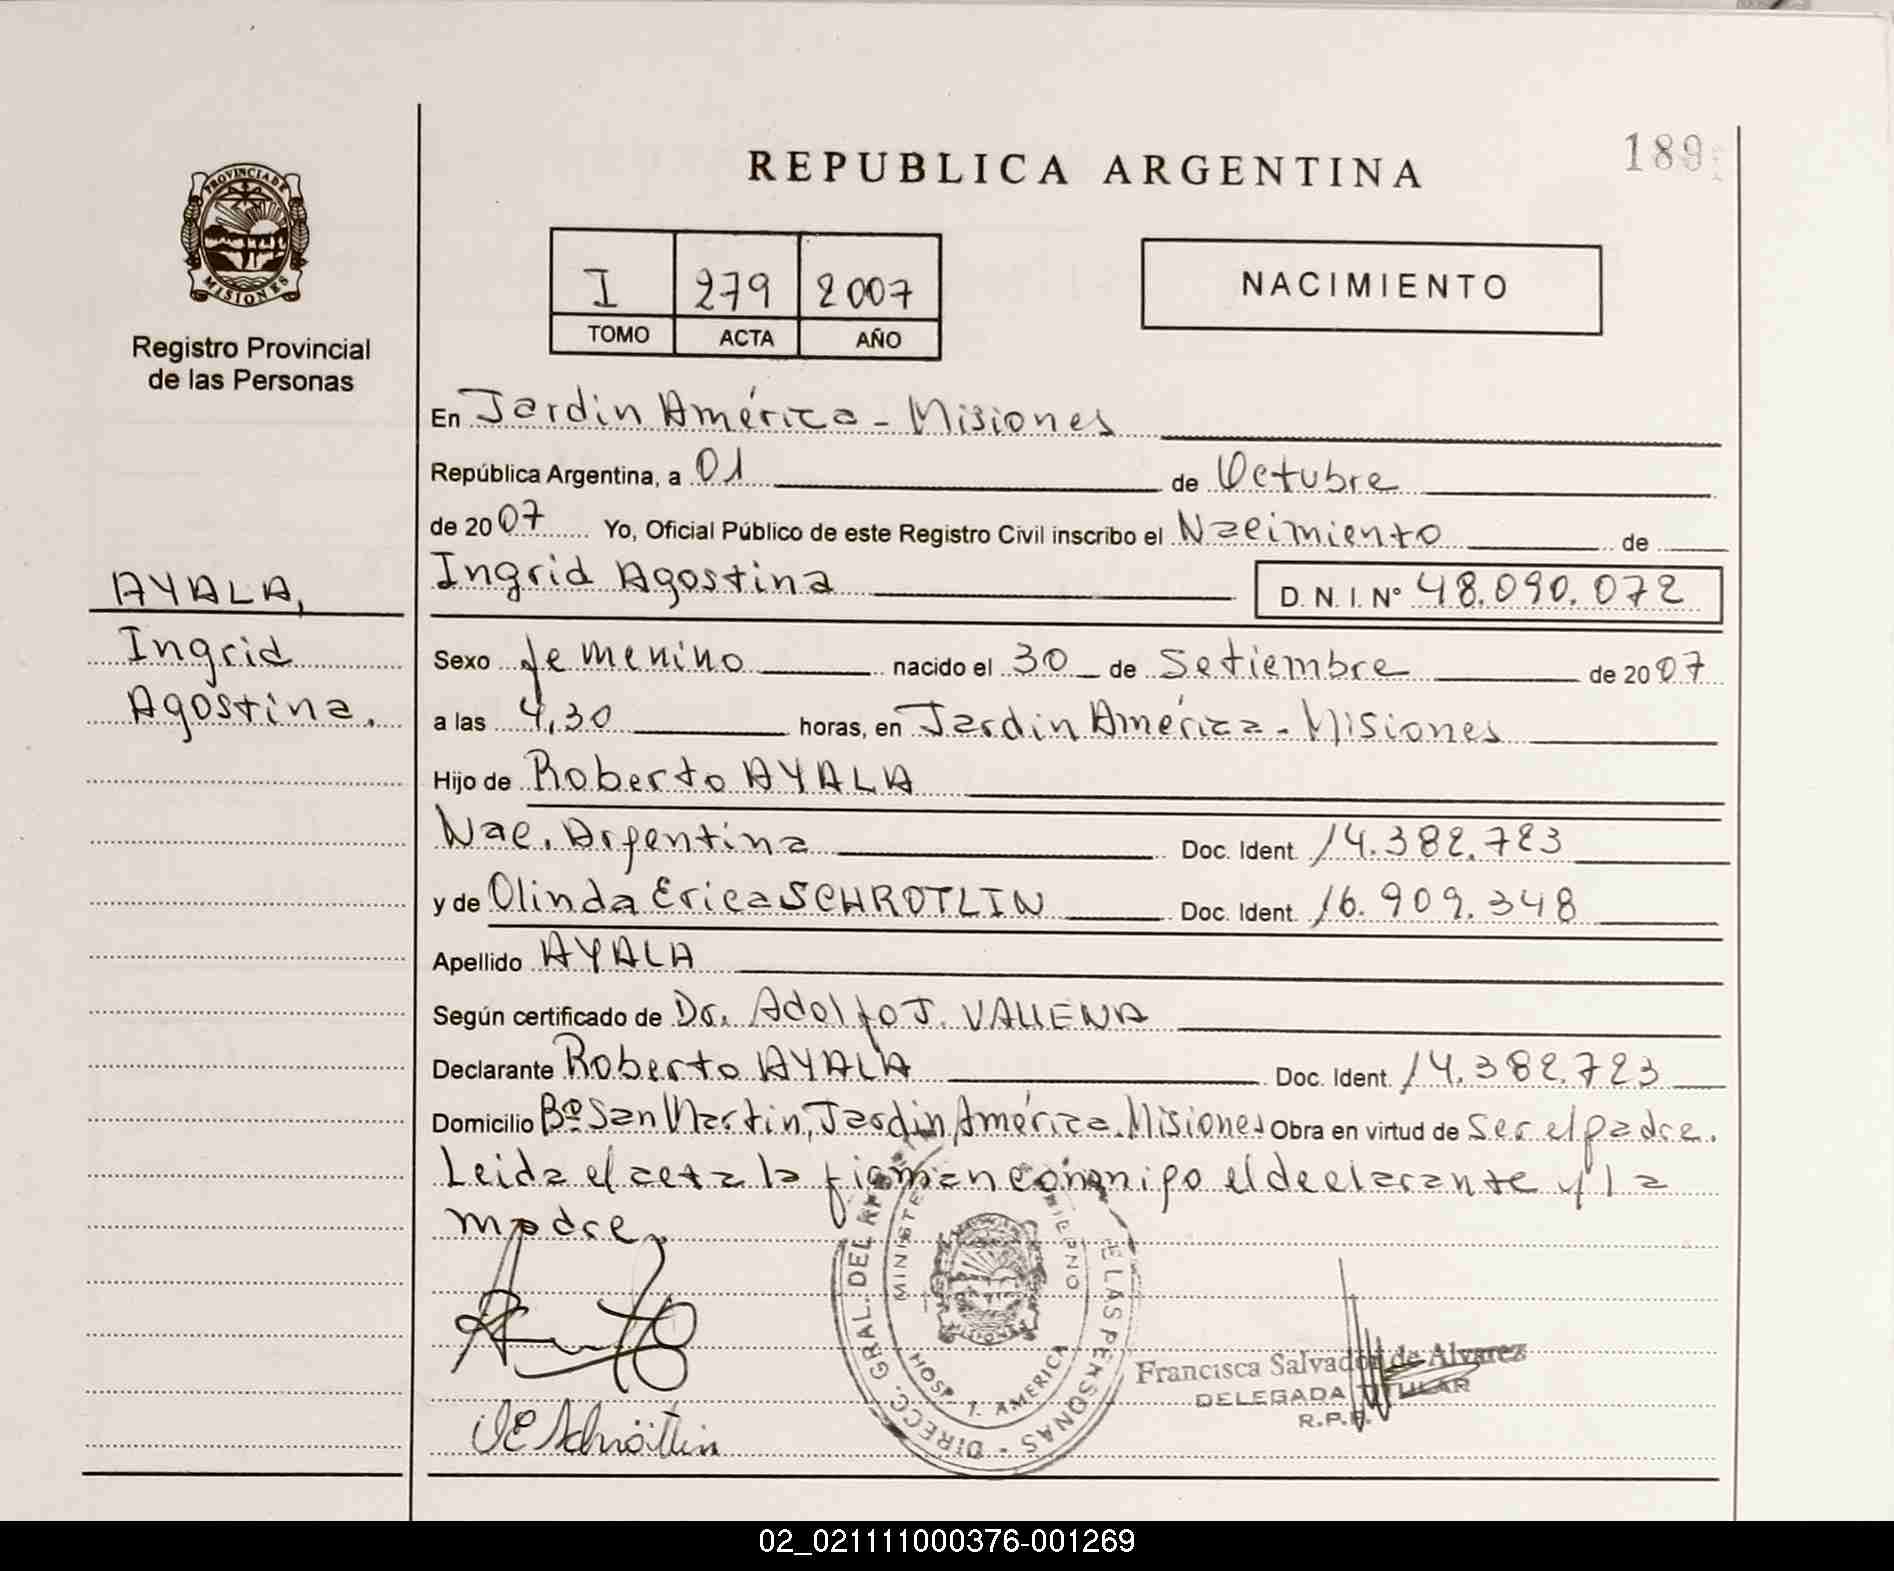 189
REPUBLICA ARGENTINA
PROVINCIA DE
MISIONES
Registro Provincial
de las Personas
I 279 2007
TOMO ACTA AÑO
NACIMIENTO
En Jardin América - Misiones
República Argentina, a 01 de Octubre
de 2007 Yo, Oficial Público de este Registro Civil inscribo el Nacimiento de
Ingrid Agostina D. N. I. N° 48.090.072
AYALA,
Ingrid
Agostina.
Sexo femenino nacido el 30 de Setiembre de 2007
a las 4,30 horas, en Jardin América - Misiones
Hijo de Roberto AYALA
Nac. Argentina Doc. Ident. 14.382.723
y de Olinda Erica SCHROTLIN Doc. Ident. 16.909.348
Apellido AYALA
Según certificado de Dr. Adolfo J. VALLENA
Declarante Roberto AYALA Doc. Ident. 14.382.723
Domicilio Bº San Martin, Jardin América. Misiones Obra en virtud de ser el padre.
Leida el acta la firman conmigo el declarante y la
madre.
DIRECC. GRAL. DEL LAS PERSONAS
HOSP. J. AMERICA
MISIONES
Francisca Salvador de Alvarez
DELEGADA TITULAR
R.P.P.
OE Schröttlin
02_021111000376-001269